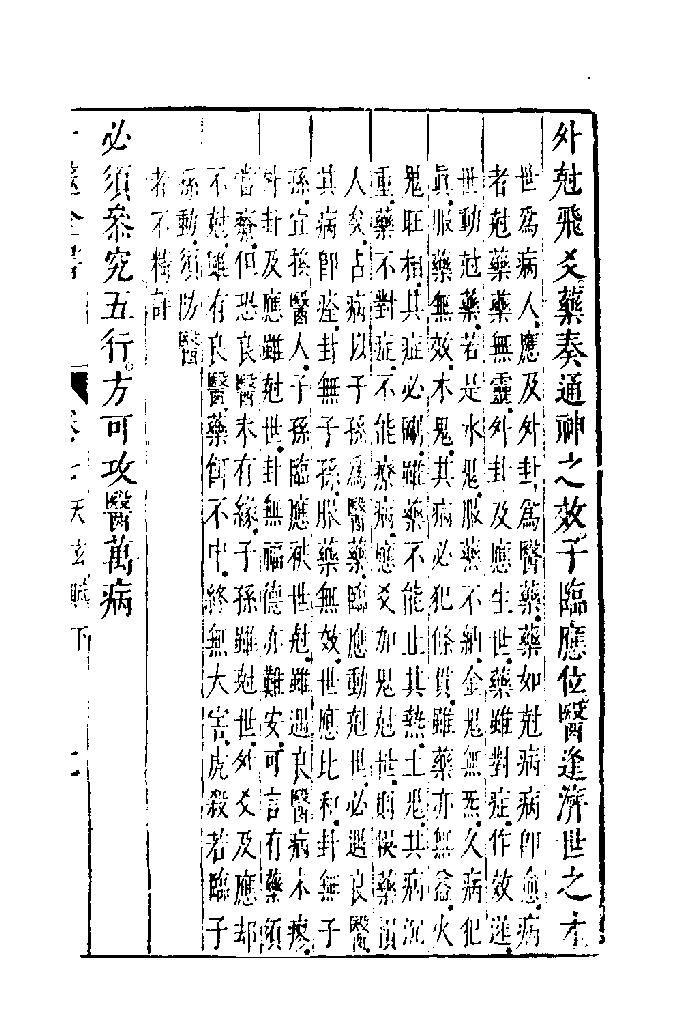 外尅飛爻藥奏通神之效子臨應位醫逢濟世之才
世爲病人應及外卦爲醫藥藥如尅病病卽愈病
者尅藥藥無靈外卦及應生世藥雖對症作效遲
世動尅藥若是水鬼服藥不納金鬼無炁久病犯
眞服藥無效木鬼其病必犯條貫雖藥亦無益火
鬼旺相其症必剛雖藥不能止其熱土鬼其病沉
重藥不對症不能療病應爻加鬼尅世則誤藥損
人矣占病以子孫爲醫藥臨應動尅世必遇良醫
其病卽痊卦無子孫服藥無效世應比和卦無子
孫宜換醫人子孫臨應衰世尅雖遇良醫病未瘳
外卦及應雖尅世卦無福德亦難安可言有藥頻
當療但恐良醫未有緣子孫雖尅世外爻及應却
不尅雖有良醫藥何不中終無大害虎殺若臨子
孫動須防醫
者不精詳
必須叅究五行方可攻醫萬病
卷 天玄賦下